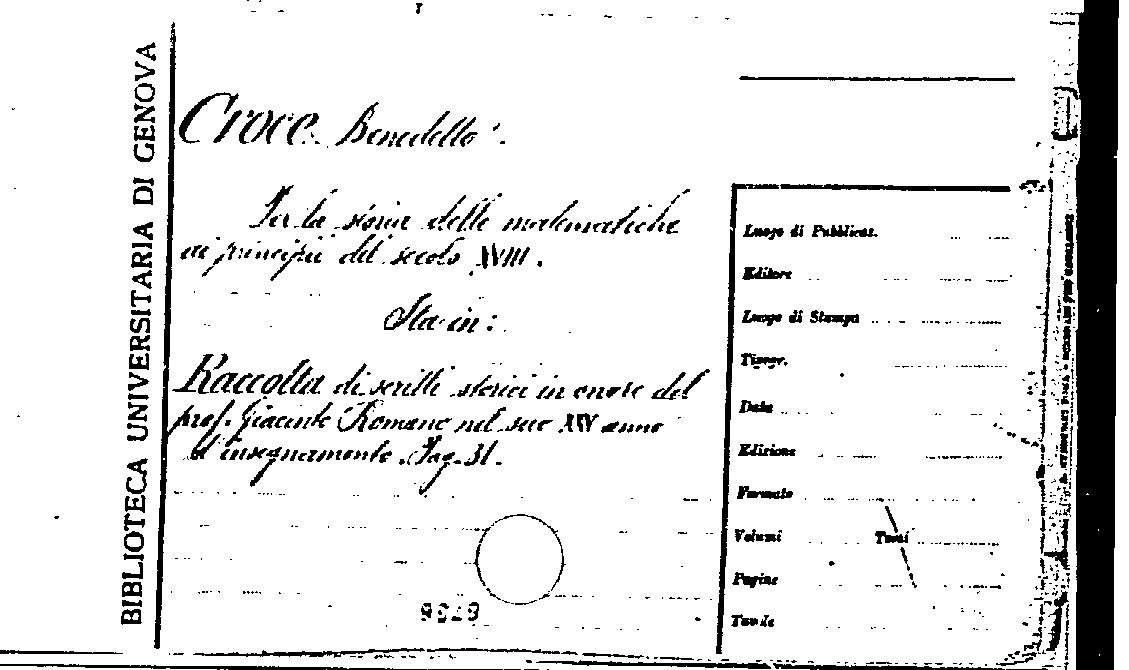 BIBLIOTECA UNIVERSITARIA DI GENOVA
Croce Benedetto.
Per la storia delle matematiche
ai principii del secolo XVIII.
Sta in:
Raccolta di scritti storici in onore del
prof. Giacinto Romano nel suo XXV anno
d'insegnamento. Pag. 31.
Luogo di Pubblicaz.
Editore
Luogo di Stampa
Tipogr.
Data
Edizione
Formato
Volumi Tomi
Pagine
Tavole